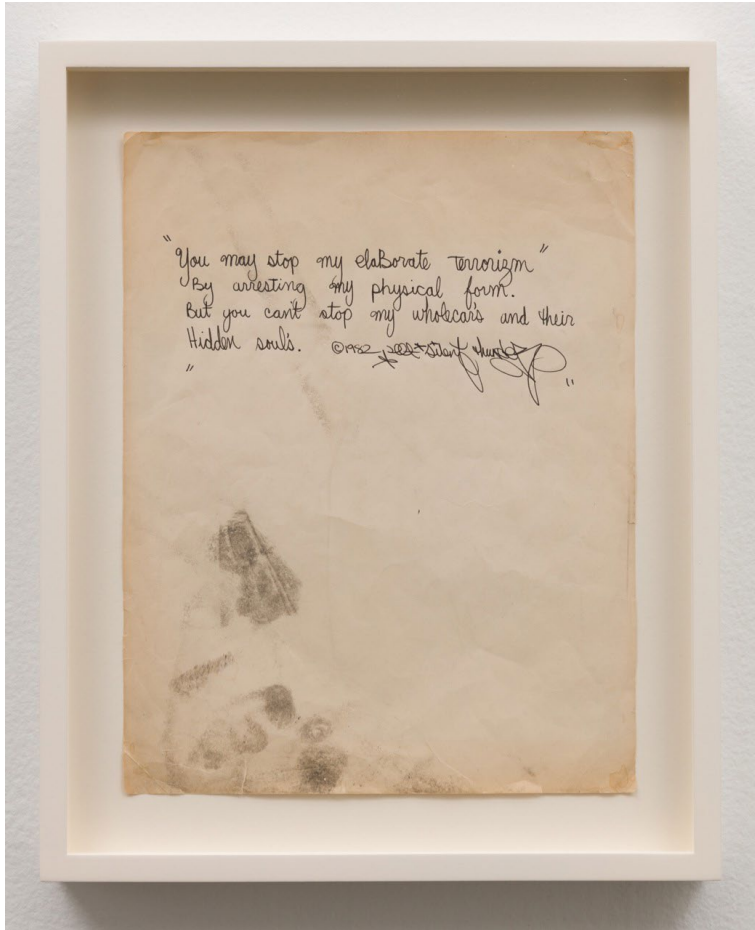 "You may stop my elaBorate Terrorizm"
By arresting my physical form.
But you can't stop my wholecars and their
Hidden soul's. ©1982
"
"